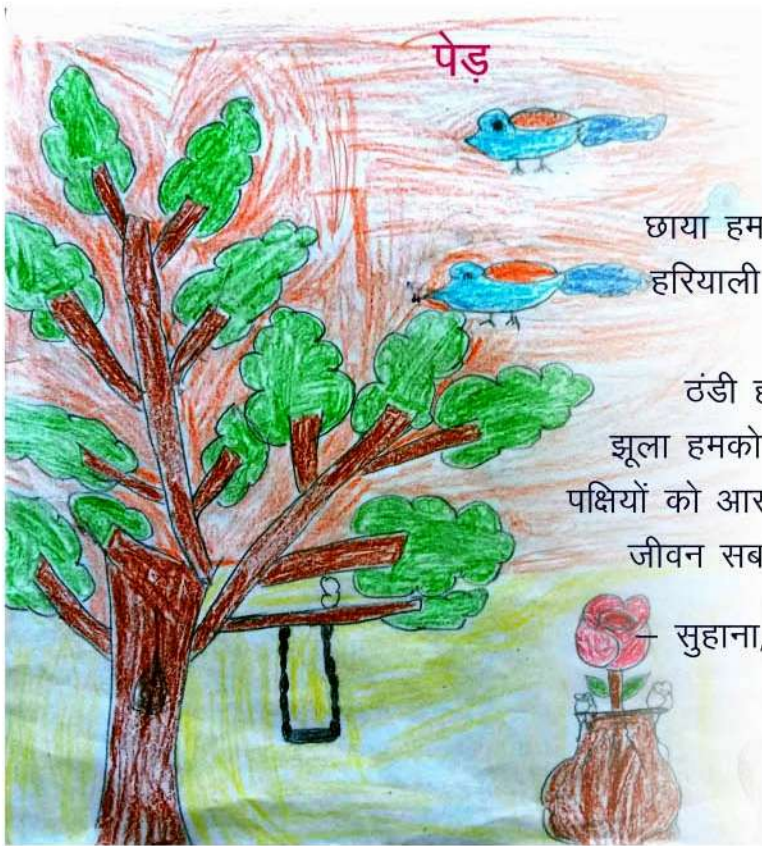 पेड़
छाया हम
हरियाली
ठंडी
झूला हमको
पक्षियों को
जीवन सब
– सुहाना,